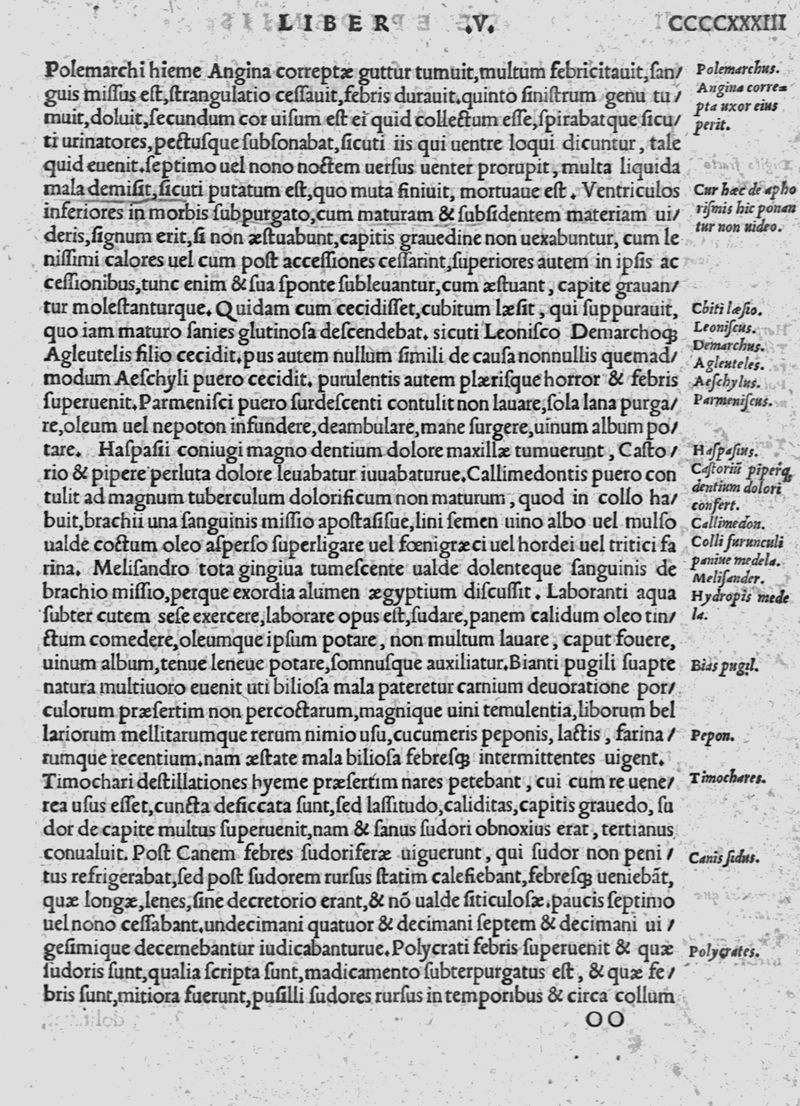 LIBER .V. CCCCXXXIII
Polemarchi hieme Angina correptæ guttur tumuit,multum febricitauit,ſan/
guis miſſus eſt,ſtrangulatio ceſſauit,febris durauit.quinto ſiniſtrum genu tu/
muit,doluit,ſecundum cor uiſum eſt ei quid collectum eſſe,ſpirabatque ſicu/
ti urinatores,pectuſque ſubſonabat,ſicuti iis qui uentre loqui dicuntur, tale
quid euenit.ſeptimo uel nono noctem uerſus uenter prorupit, multa liquida
mala demiſit,ſicuti putatum eſt,quo muta finiuit, mortuaue eſt. Ventriculos
inferiores in morbis ſubpurgato,cum maturam & ſubſidentem materiam ui/
deris,ſignum erit,ſi non æſtuabunt,capitis grauedine non uexabuntur, cum le
niſſimi calores uel cum poſt acceſſiones ceſſarint,ſuperiores autem in ipſis ac
ceſſionibus,tunc enim & ſua ſponte ſubleuantur,cum æſtuant, capite grauan/
tur moleſtanturque. Quidam cum cecidiſſet,cubitum læſit, qui ſuppurauit,
quo iam maturo ſanies glutinoſa deſcendebat. ſicuti Leoniſco Demarchoq;
Agleutelis filio cecidit.pus autem nullum ſimili de cauſa nonnullis quemad/
modum Aeſchyli puero cecidit. purulentis autem plæriſque horror & febris
ſuperuenit.Parmeniſci puero ſurdeſcenti contulit non lauare,ſola lana purga/
re,oleum uel nepoton infundere,deambulare,mane ſurgere,uinum album po/
tare. Haſpaſii coniugi magno dentium dolore maxillæ tumuerunt, Caſto/
rio & pipere perluta dolore leuabatur iuuabaturue.Callimedontis puero con
tulit ad magnum tuberculum dolorificum non maturum, quod in collo ha/
buit,brachii una ſanguinis miſſio apoſtaſiſue,lini ſemen uino albo uel mulſo
ualde coctum oleo aſperſo ſuperligare uel fœnigræci uel hordei uel tritici fa
rina. Meliſandro tota gingiua tumeſcente ualde dolenteque ſanguinis de
brachio miſſio,perque exordia alumen ægyptium diſcuſſit. Laboranti aqua
ſubter cutem ſeſe exercere,laborare opus eſt,ſudare,panem calidum oleo tin/
ctum comedere,oleumque ipſum potare, non multum lauare, caput fouere,
uinum album,tenue leneue potare,ſomnuſque auxiliatur.Bianti pugili ſuapte
natura multiuoro euenit uti bilioſa mala pateretur carnium deuoratione por/
culorum præſertim non percoctarum,magnique uini temulentia,liborum bel
lariorum mellitarumque rerum nimio uſu,cucumeris peponis, lactis, farina/
rumque recentium.nam æſtate mala bilioſa febreſq; intermittentes uigent.
Timochari deſtillationes hyeme præſertim nares petebant, cui cum re uene/
rea uſus eſſet,cuncta deſiccata ſunt,ſed laſſitudo,caliditas,capitis grauedo, ſu
dor de capite multus ſuperuenit,nam & ſanus ſudori obnoxius erat, tertianus
conualuit. Poſt Canem febres ſudoriferæ uiguerunt, qui ſudor non peni/
tus refrigerabat,ſed poſt ſudorem rurſus ſtatim calefiebant,febreſq; ueniebãt,
quæ longæ,lenes,ſine decretorio erant,& nõ ualde ſiticuloſæ.paucis ſeptimo
uel nono ceſſabant.undecimani quatuor & decimani ſeptem & decimani ui/
geſimique decernebantur iudicabanturue.Polycrati febris ſuperuenit & quæ
ſudoris ſunt,qualia ſcripta ſunt,madicamento ſubterpurgatus eſt, & quæ fe/
bris ſunt,mitiora fuerunt,puſilli ſudores rurſus in temporibus & circa collum
OO
Polemarchus.
Angina corre=
pta uxor eius
perit.
Cur hæc de apho
riſmis hic ponan
tur non uideo.
Cbiti læſio.
Leoniſcus.
Demarchus.
Agleuteles.
Aeſchylus.
Parmeniſcus.
Haſpaſius.
Caſtoriũ piperq;
dentium dolori
confert.
Callimedon.
Colli furunculi
paniue medela.
Meliſander.
Hydropis mede
la.
Bias pugil.
Pepon.
Timochares.
Canis ſidus.
Polycrates.